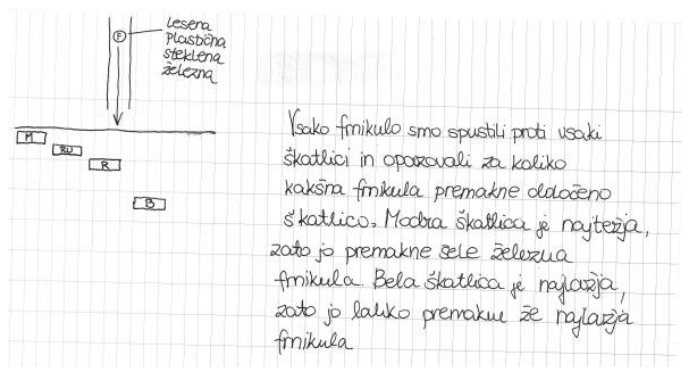 lesena
F plastična
steklena
železna
M
RU
R
B
Vsako frnikulo smo spustili proti vsaki
škatlici in opazovali za koliko
kakšna frnikula premakne določeno
škatlico. Modra škatlica je najtežja,
zato jo premakne šele železna
frnikula. Bela škatlica je najlažja,
zato jo lahko premakne že najlažja
frnikula